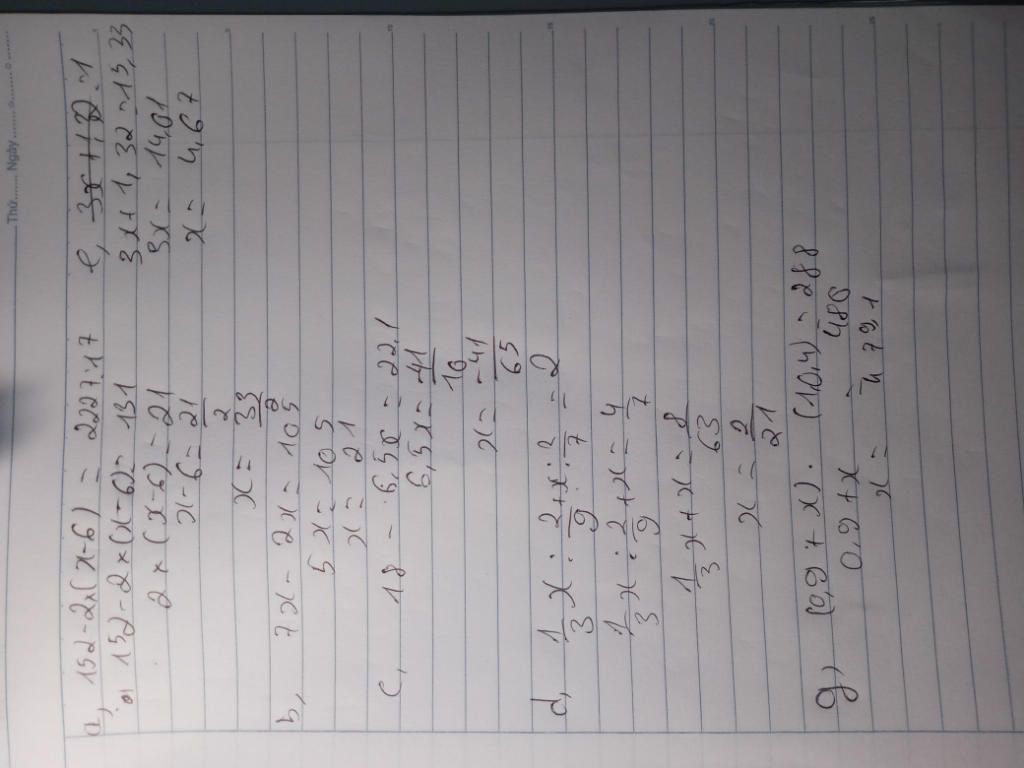 Thứ........ Ngày ........
a, 152-2×(x-6) = 2227:17
152-2×(x-6)= 131
2×(x-6)=21
x-6=21/2
x=33/2
b, 7x- 2x= 105
5x=105
x= 21
c, 18 - 6,5x = 22,1
6,5x=-41/10
x=-41/65
d, 1/3 x : 2/9 + x : 2/7 = 2
1/3 x : 2/9 + x = 4/7
1/3 x + x = 8/63
x = 2/21
g, (0,9 + x) . (10,4) = 288
0,9+x = 480
x= 479,1
e, 3x+1,32=1
3x+1,32=13,33
3x= 14,01
x= 4,67